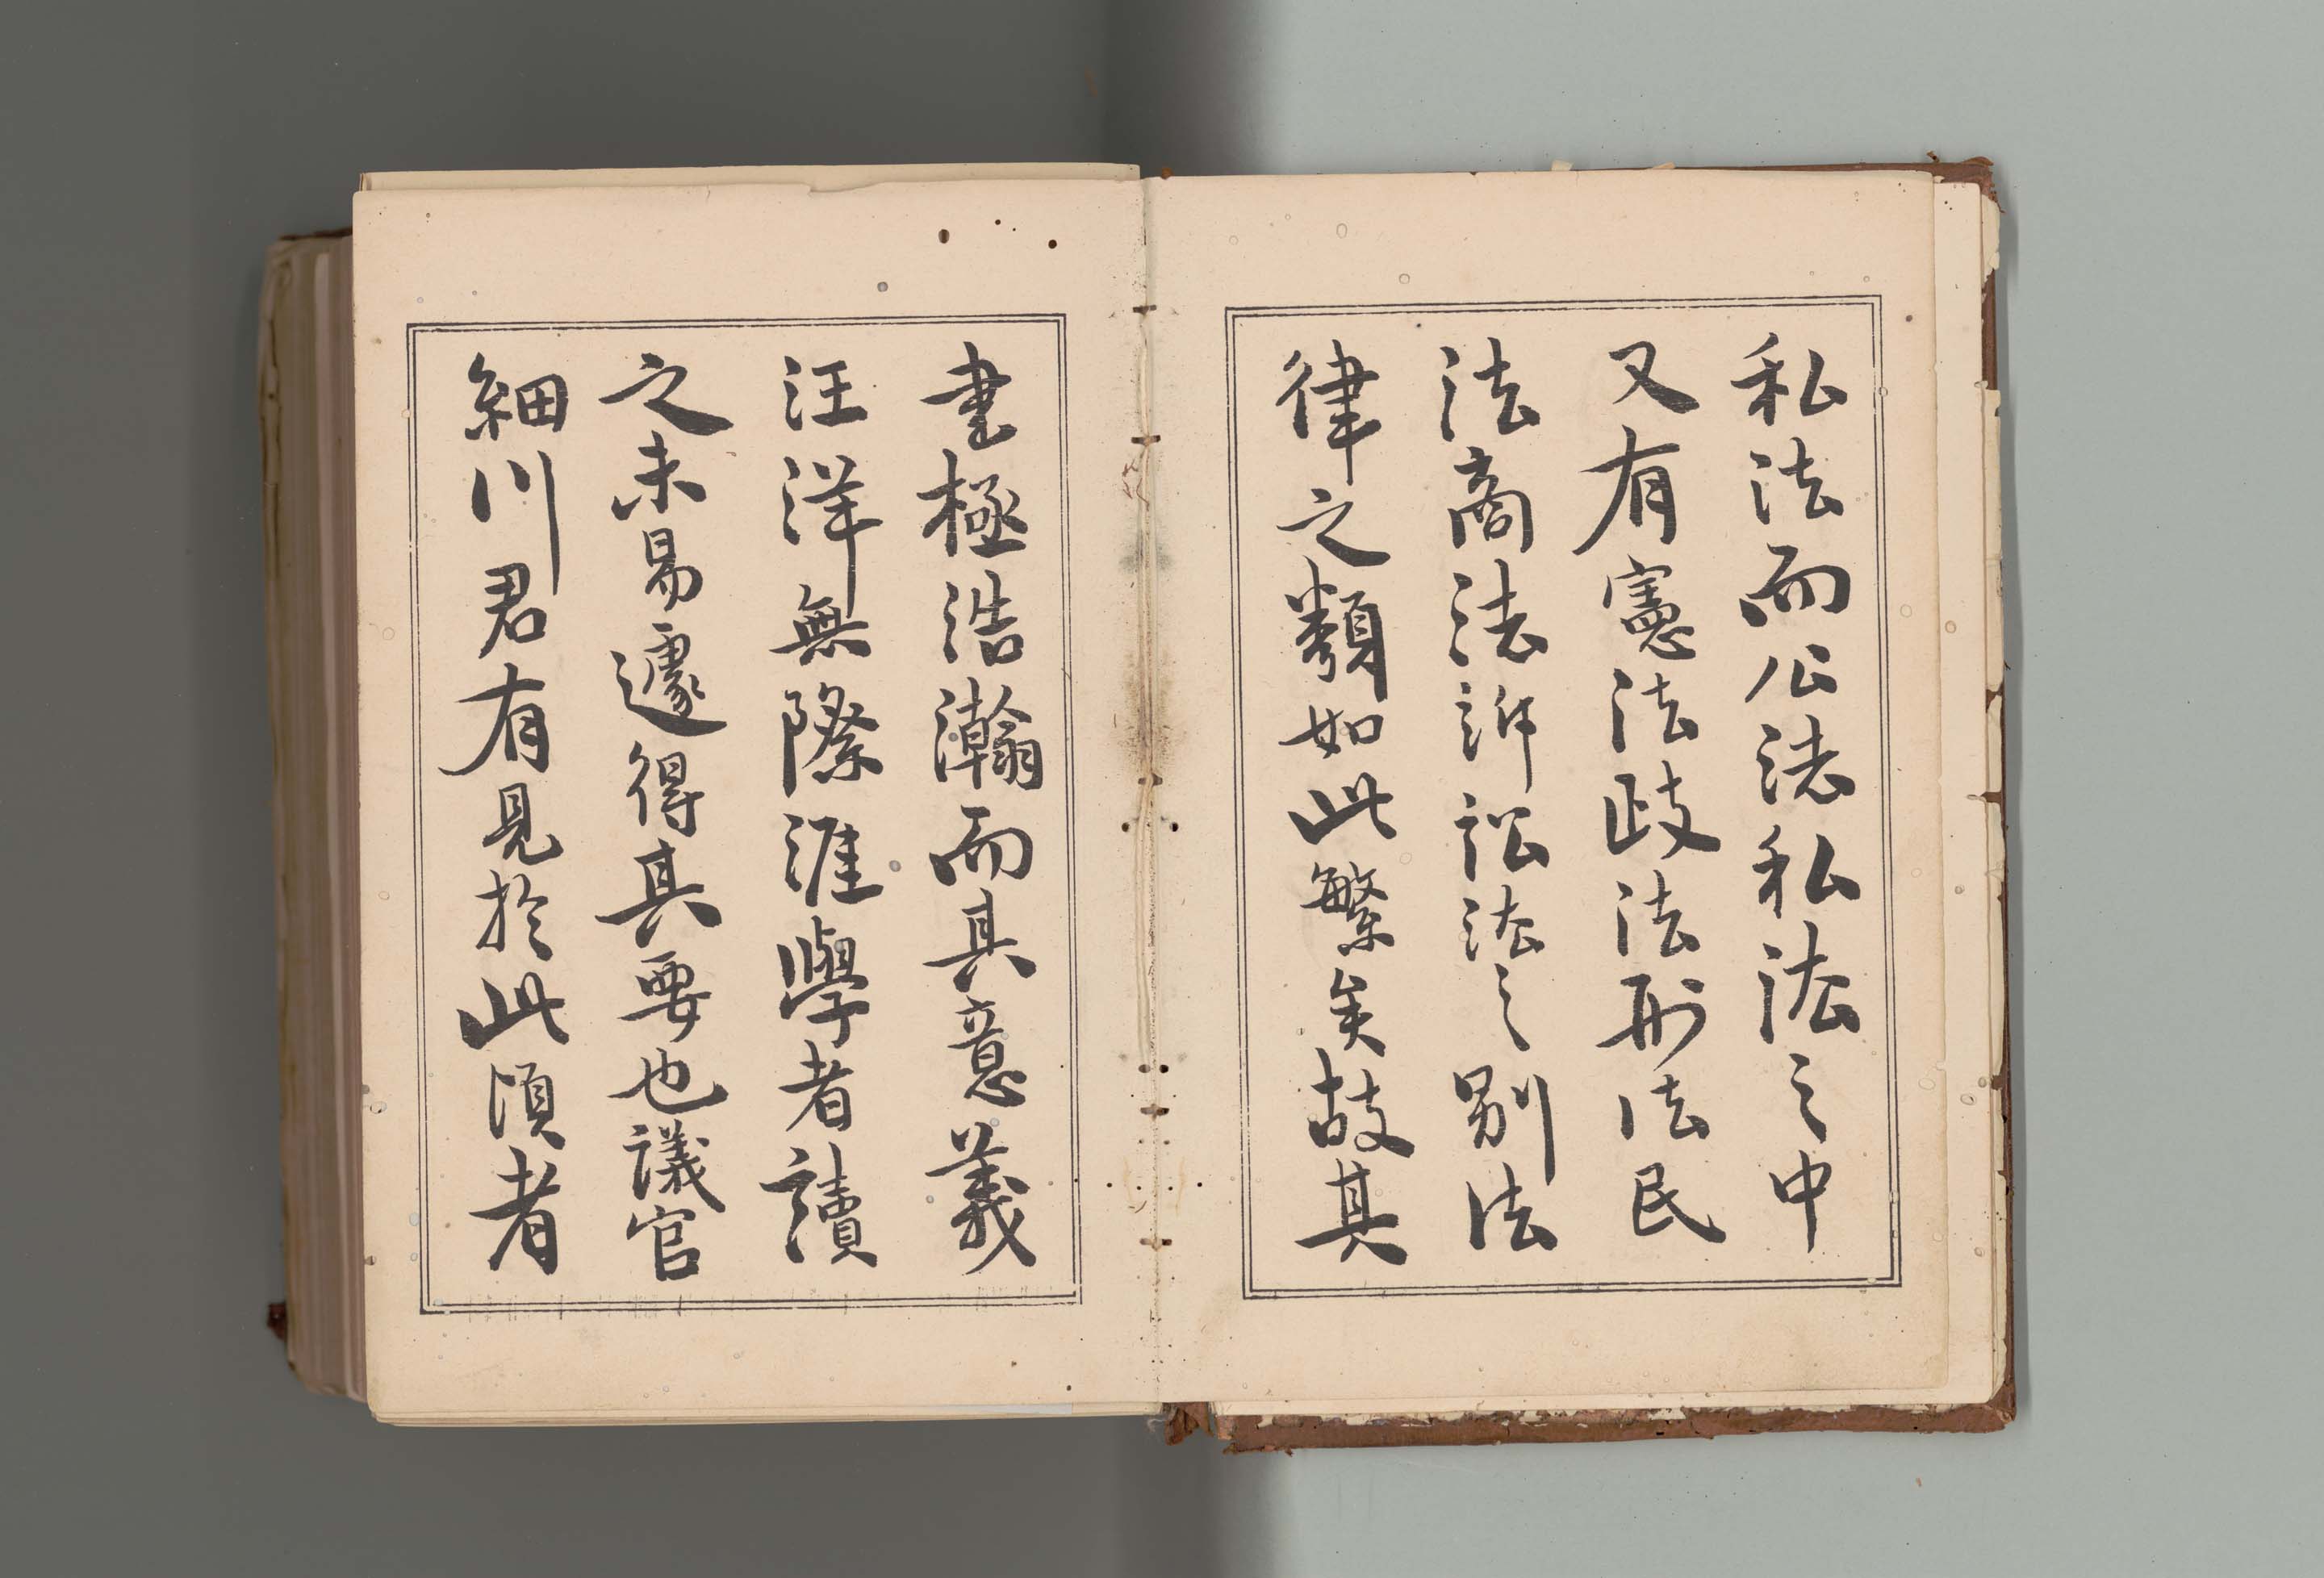 私法而公法私法之中
又有憲法政法刑法民
法商法訴訟法之別法
律之類如此繁矣故其
書極浩瀚而其意義
汪洋無際涯學者讀
之未易遽得其要也議官
細川君有見於此頃者